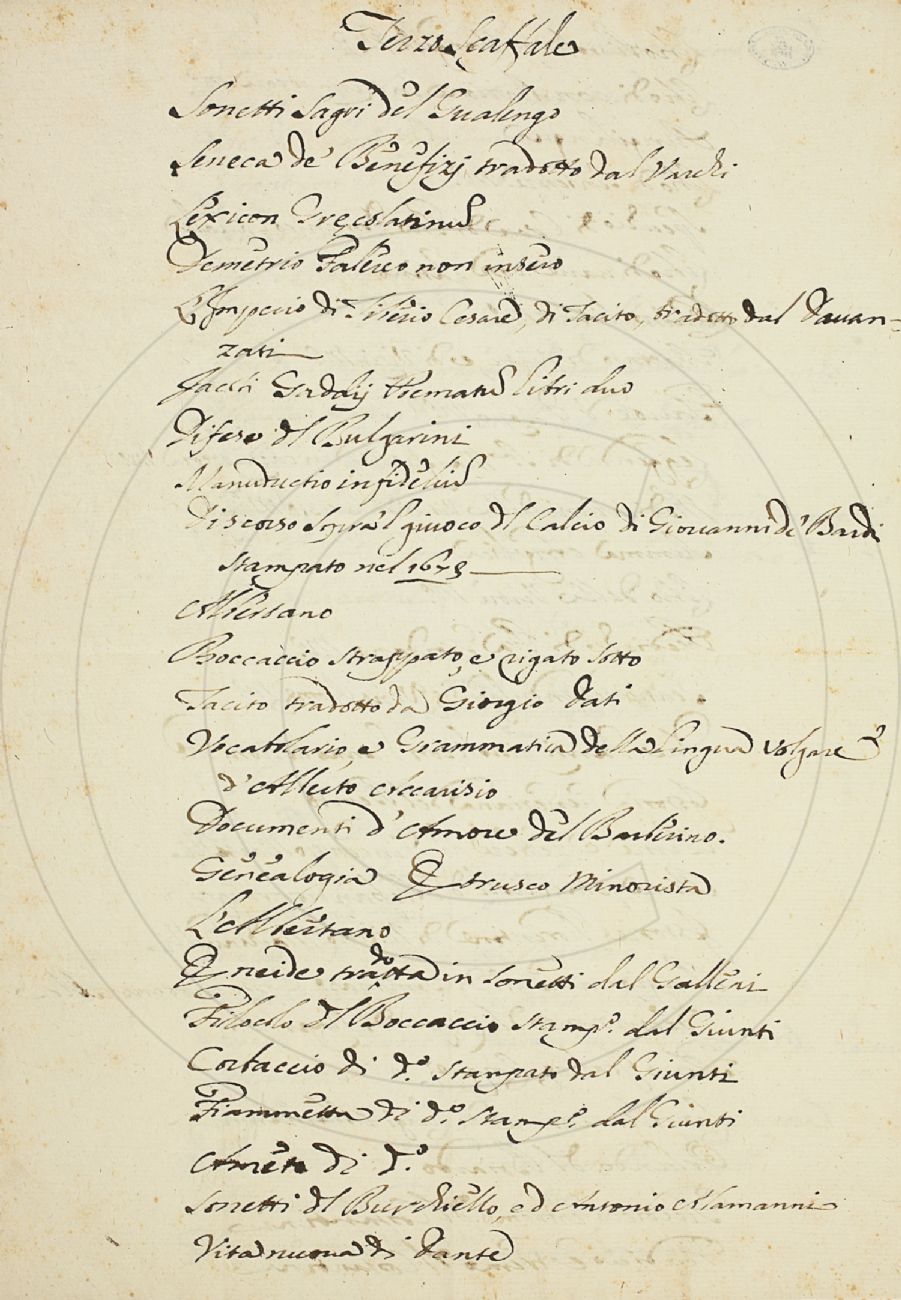 Terzo Scaffale
Sonetti Sagri del Gualengo
Seneca de' Benefizj tradotto dal Varchi
Lexicon Grecolatinum
Demetrio Falereo non intero
L'Imperio di Tiberio Cesare, di Tacito, tradotto dal Davan-
zati
Jacobi Gaddij Poematum libri duo
Difese del Bulgarini
Manuductio in fidelium
Discorso sopra 'l giuoco del Calcio di Giovanni de' Bardi
stampato nel 1673
Albertano
Boccaccio strappato, e rigato sotto
Tacito tradotto da Giorgio Dati
Vocabolario, e Grammatica della lingua volgare
d'Alberto Accarisio
Documenti d'Amore del Barberino.
Genealogia Etrusco Minorista
L'Albertano
Eneide tradotta in sonetti dal
Filocolo del Boccaccio stamp.º dal Giunti
Corbaccio di d.º stampato dal Giunti
Fiammetta di d.º stamp.º dal Giunti
Ameto di d.º
Sonetti del Burchiello, ed Antonio Alamanni
Vita nuova di Dante